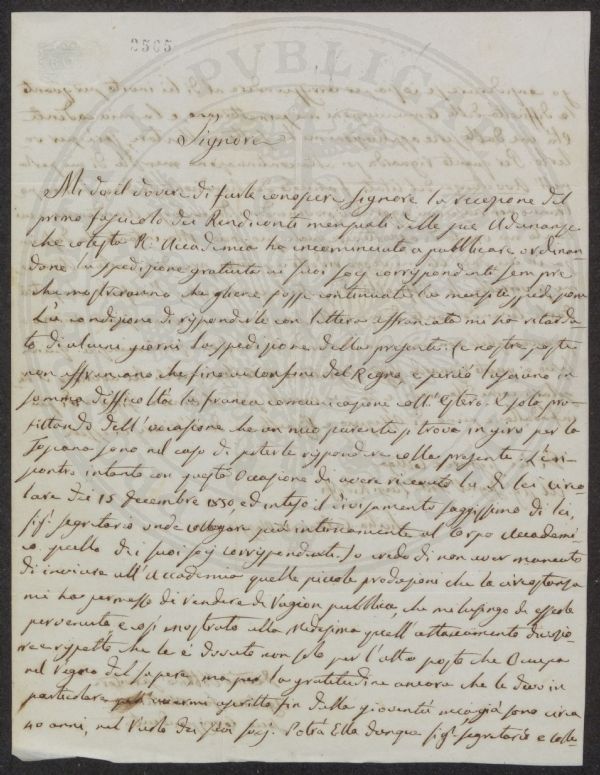 2505
Signore
Mi do il dovere di farle conoscere Signore la recezione del
primo fascicolo dei Rendiconti mensuali delle sue Adunanze
che cotesta R. Accademia ha incominciato a pubblicare ordinan-
done la spedizione gratuita ai suoi socj corrispondenti sempre
che mostreranno che gliene fosse continuata la mensile spedizione
La condizione di rispondirle con lettera affrancata mi ha ritarda-
to di alcuni giorni la spedizione della presente. Le nostre poste
non affrancano che fino ai confini del Regno e perciò lasciano in
somma difficoltà la franca comunicazione coll'Estero. E solo pro-
fittando dell'occasione che un mio parente si trova in giro per la
Toscana sono nel caso di poterle rispondere colla presente. Le ri-
pontro intanto con questa Occasione di avere ricevuto la di lei circo-
lare dei 15 decembre 1850, ed inteso il divisamento saggissimo di lei,
sig. segretario onde collegare più intimamente al Corpo Accademi-
co quello dei suoi socj corrispondenti. Io credo di non aver mancato
di inviare all'Accademia quelle piccole produzioni che la circostanza
mi ha permesso di rendere di ragion pubblica, che mi lusingo di esserle
pervenute e così mostrato alla medesima quell'attaccamento
e rispetto che le è dovuto non solo per l'alto posto che Occupa
nel Regno del sapere ma per la gratitudine ancora che le devo in
particolare per avermi ascritto fin dalla gioventù ecco già sono circa
40 anni, nel Ruolo dei suoi socj. Potrà Ella dunque sig. segretario e colle-